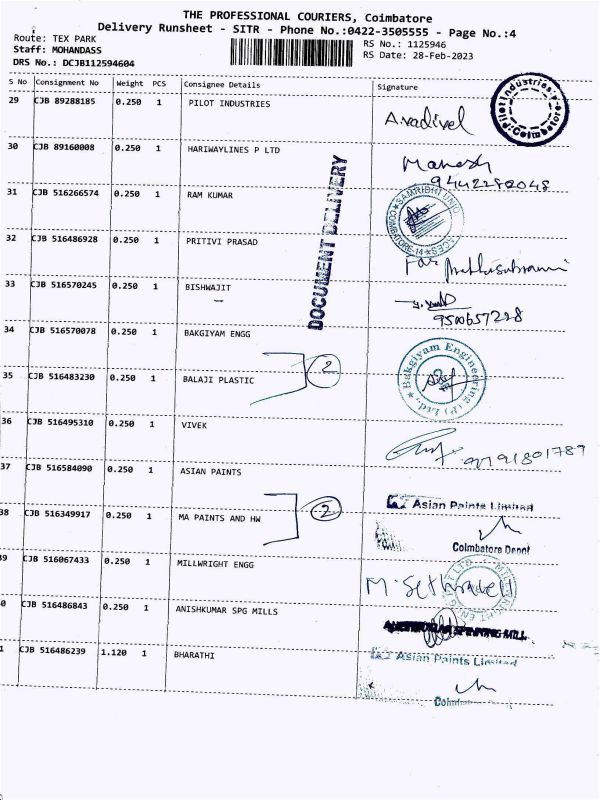 THE PROFESSIONAL COURIERS, Coimbatore
Delivery Runsheet - SITR - Phone No.:0422-3505555 - Page No.:4
Route: TEX PARK
RS No.: 1125946
Staff: MOHANDASS
RS Date: 28-Feb-2023
DRS No.: DCJB112594604
S No Consignment No Weight PCS Consignee Details Signature
29 CJB 89288185 0.250 1 PILOT INDUSTRIES A.vadivel
Pilot Industries Coimbatore
30 CJB 89160008 0.250 1 HARIWAYLINES P LTD Manesh
9442282048
31 CJB 516266574 0.250 1 RAM KUMAR
DOCUMENT DELIVERY
32 CJB 516486928 0.250 1 PRITIVI PRASAD
For Muthusubramani
33 CJB 516570245 0.250 1 BISHWAJIT
9500657228
34 CJB 516570078 0.250 1 BAKGIYAM ENGG
Bakgiyam Engineering (P) Ltd.,
2
35 CJB 516483230 0.250 1 BALAJI PLASTIC
36 CJB 516495310 0.250 1 VIVEK
37 CJB 516584090 0.250 1 ASIAN PAINTS
Asian Paints Limited
2
38 CJB 516349917 0.250 1 MA PAINTS AND HW
Coimbatore Depot
39 CJB 516067433 0.250 1 MILLWRIGHT ENGG
M. Sethravell
0 CJB 516486843 0.250 1 ANISHKUMAR SPG MILLS
SPINNING MILL
1 CJB 516486239 1.120 1 BHARATHI
Asian Paints Limited